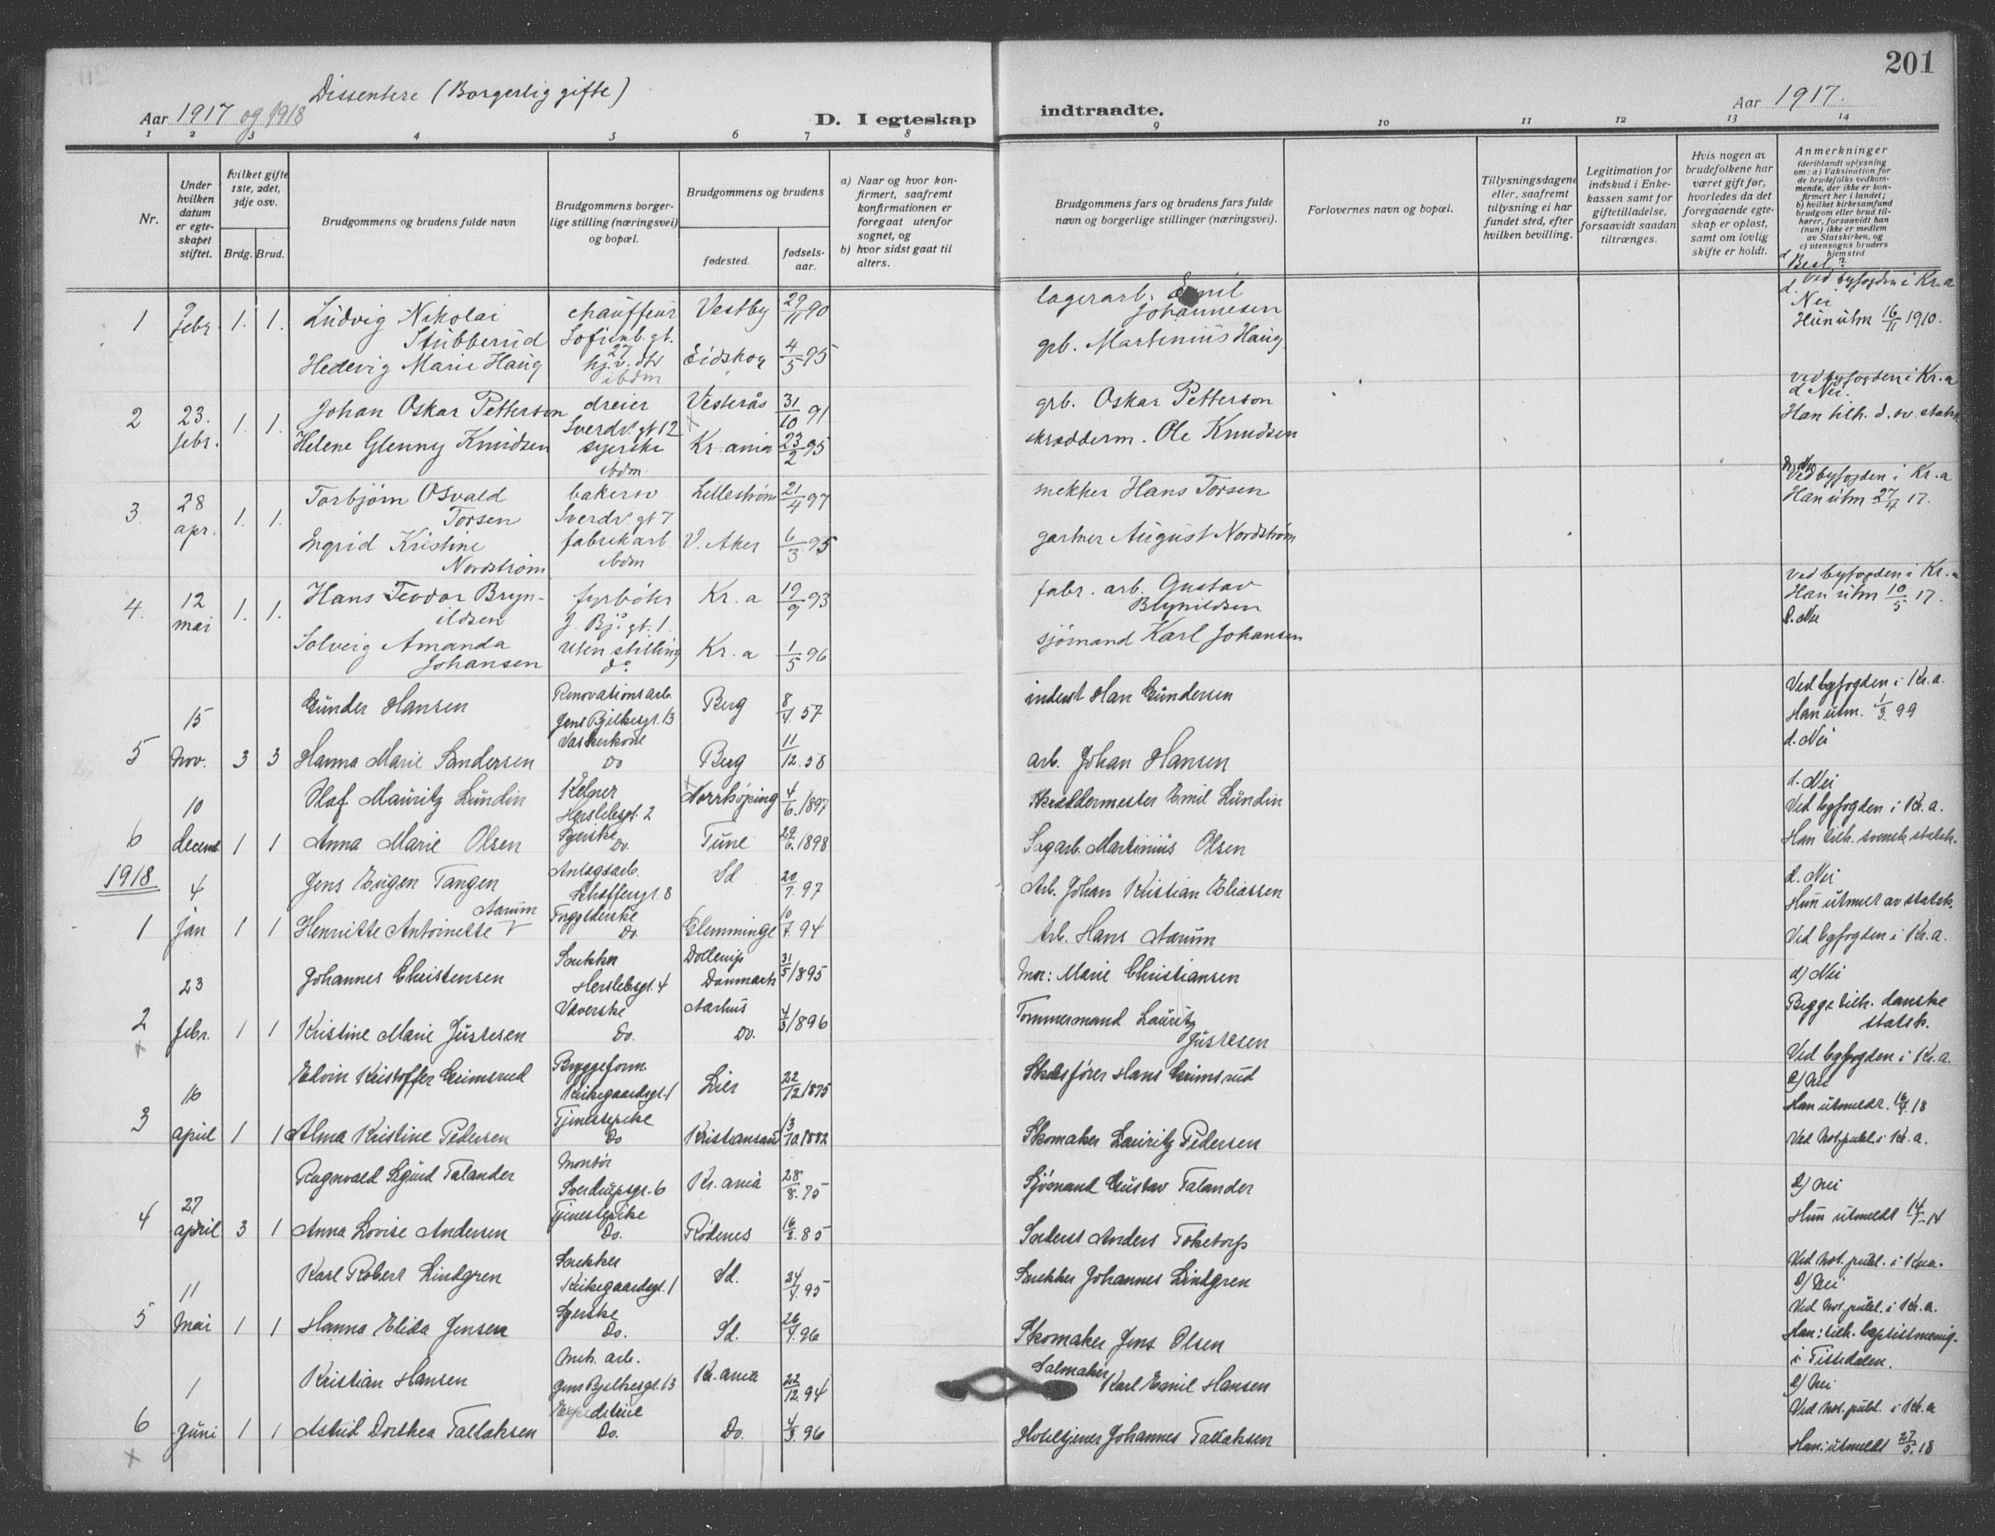 201
Dissentere (Borgerlig gifte)
Aar 1917 og 1918
D. I egteskap indtraadte.
Aar 1917.
1 2 3 4 5 6 7 8 9 10 11 12 13 14
Nr.
Under hvilken datum er egteskapet stiftet.
Hvilket gifte 1ste, 2det, 3dje osv.
Brdg. Brud.
Brudgommens og brudens fulde navn
Brudgommens borgerlige stilling (næringsvei) og bopæl.
Brudgommens og brudens
fødested.
fødselsaar.
a) Naar og hvor konfirmert, saafremt konfirmationen er foregaat utenfor sognet, og
b) hvor sidst gaat til alters.
Brudgommens fars og brudens fars fulde navn og borgerlige stillinger (næringsvei).
Forlovernes navn og bopæl.
Tillysningsdagene eller, saafremt tillysning ei har fundet sted, efter hvilken bevilling.
Legitimation for indskud i Enkekassen samt for giftetilladelse, forsaavidt saadan tiltrænges.
Hvis nogen av brudefolkene har været gift før, hvorledes da det foregaaende egteskap er opløst, samt om lovlig skifte er holdt.
Anmerkninger
(deriblandt oplysning om: a) Vaksination for de brudefolks vedkommende, der ikke er konfirmert her i landet; b) hvilket kirkesamfund brudgom eller brud tilhører, forsaavidt han (hun) ikke er medlem av Statskirken, og c) utensogns bruders hjemsted
d Besl.?
1 febr. 1. 1. Ludvig Nikolai Stubberud chauffeur Sofienb. gt. 27 Vestby 29/11 90 lagerarb. Emil Johannesen d. Ved byfogden i Kr.a Nei
Hedevig Marie Haug hj.v. dtr ibdm Eidskog 4/5 95 grb. Martenius Haug Hun utm 16/11 1910.
2 23. febr. 1. 1. Johan Oskar Petterson dreier Sverdr. gt 12 Vesterås 31/10 91 grb. Oskar Petterson Ved byfogden i Kr.a d Nei.
Helene Glenny Knudsen syerske ibdm Kr.ania 23/2 95 skrædderm. Ole Knudsen Han tilh. d. sv. statsk
3. 28 apr. 1. 1. Torbjørn Osvald Torsen bakersv. Sverdr. gt 7 Lillestrøm 21/4 97 mekker Hans Torsen d. Nei Ved byfogden i Kr.a Han utm 27/4 17.
Ingrid Kristine Nordstrøm fabrikarb ibdm V. Aker 6/3 95 gartner August Nordstrøm
4. 12 mai 1. 1. Hans Teodor Brynildsen fyrbøter J. Bj. gt. 1. Kr.a 19/9 93 fabr. arb. Gustav Brynildsen Ved byfogden i Kr.a Han utm 10/5 17. d. Nei
Solveig Amanda Johansen uten stilling do Kr.a 1/5 96 sjømand Karl Johansen
5 15 Nov. 3 3 Gunder Hansen Renovationsarb. Jens Bjelkesgt. 13 Berg 8/4 57 inderst Han Gundersen Ved byfogden i Kr.a. Han utm. 1/3 99
Hanna Marie Sandersen Vaskerkone Do Berg 11/12 58 arb. Johan Hansen d. Nei
6 10 decemb 1 1 Olaf Mauritz Lundin Kelner Herslebsgt. 2 Norrköping 4/6 1897 Skræddermester Emil Lundin d. Nei Ved byfogden i Kr.a.
Anna Marie Olsen Syerske Do. Tune 29/6 1898 Sagarb. Martinius Olsen Han tilh. svensk statsk.
1918
1 4 jan 1 1 Jens Eugen Tangen Anlægsarb. Schøffersgt. 8 Sd 20/7 97 Arb. Johan Kristian Eliassen d. Nei Hun utmelt av statsk.
Henriette Antoinette Aarum Do. Glemminge 10/7 94 Arb. Hans Aarum Ved byfogden i Kr.a.
2 23 febr. 1 1 Johannes Christensen Snekker Herslebsgt. 4 Danmark 31/5 1895 Mor: Marie Christiansen d) Nei Begge tilh. danske statsk.
Kristine Marie Justesen Væverske Do. Aarhus Do. 4/3 1896 Tømmermand Lauritz Justesen Ved byfogden i Kr.a.
3 16 april 1 1 Edvin Kristoffer Grimsrud Byggeform Kirkegaardsgt. 1 Lier 22/12 1875 Hans Grimsrud d) Nei Han utmeldt. 16/4 18
Alma Kristine Pedersen Tjenestepike Do Kristiansand 13/10 1882 Skomaker Lauritz Pedersen Ved Not. publ. i Kr.a.
4 27 april 3 1 Ragnvald Sigurd Talander Montør Sverdrupsgt. 6 Kr.ania 28/8 75 Sjømand Gustav Talander d) Nei
Anna Lovise Andersen Tjenestepike Do. Rødenes 16/2 85 Inderst Anders Toketorp Hun utmeldt 14/7 14 Ved Not. publ. i Kr.a.
5 11 Mai 1 1 Karl Robert Lindgren Snekker Kirkegaardsgt. 1 Sd. 24/4 95 Snekker Johannes Lindgren d) Nei Ved Not. publ. i Kr.a.
Hanna Elida Jensen Syerske Do. Sd. 26/4 96 Skomaker Jens Olsen Han: tilh. baptistmenig. i Tistedalen.
6 1 juni 1 1 Kristian Hansen Mek. arb. Jens Bjelkesgt. 13 Kr.ania 22/12 94 Salmaker Karl Emil Hansen d) Nei Ved Not. publ. i Kr.a
Astrid Dorthea Tallaksen Expeditrice Do. Do. 4/3 96 Hoteltjener Johannes Tallaksen Han: utmeldt 27/5 18